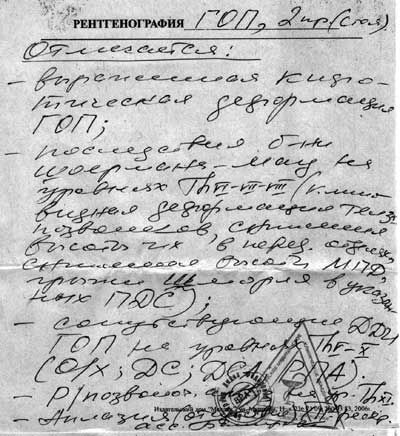 РЕНТГЕНОГРАФИЯ ГОП, 2 пр (стоя)
Отмечается:
– выраженная кифо-
тическая деформация
ГОП;
– последствия б-ни
Шоермана-Мау на
уровнях Th VI-VII-VIII (клино-
видная деформация тел
позвонков, снижение
высоты их в перед. отделах,
снижение высоты МПД,
грыжи Шморля в указан-
ных ПДС);
– сопутствующие ДДИ
ГОП на уровнях Th V-X
(О/Х; ДС;
– Р/позвон.
Издательский дом 2006г.